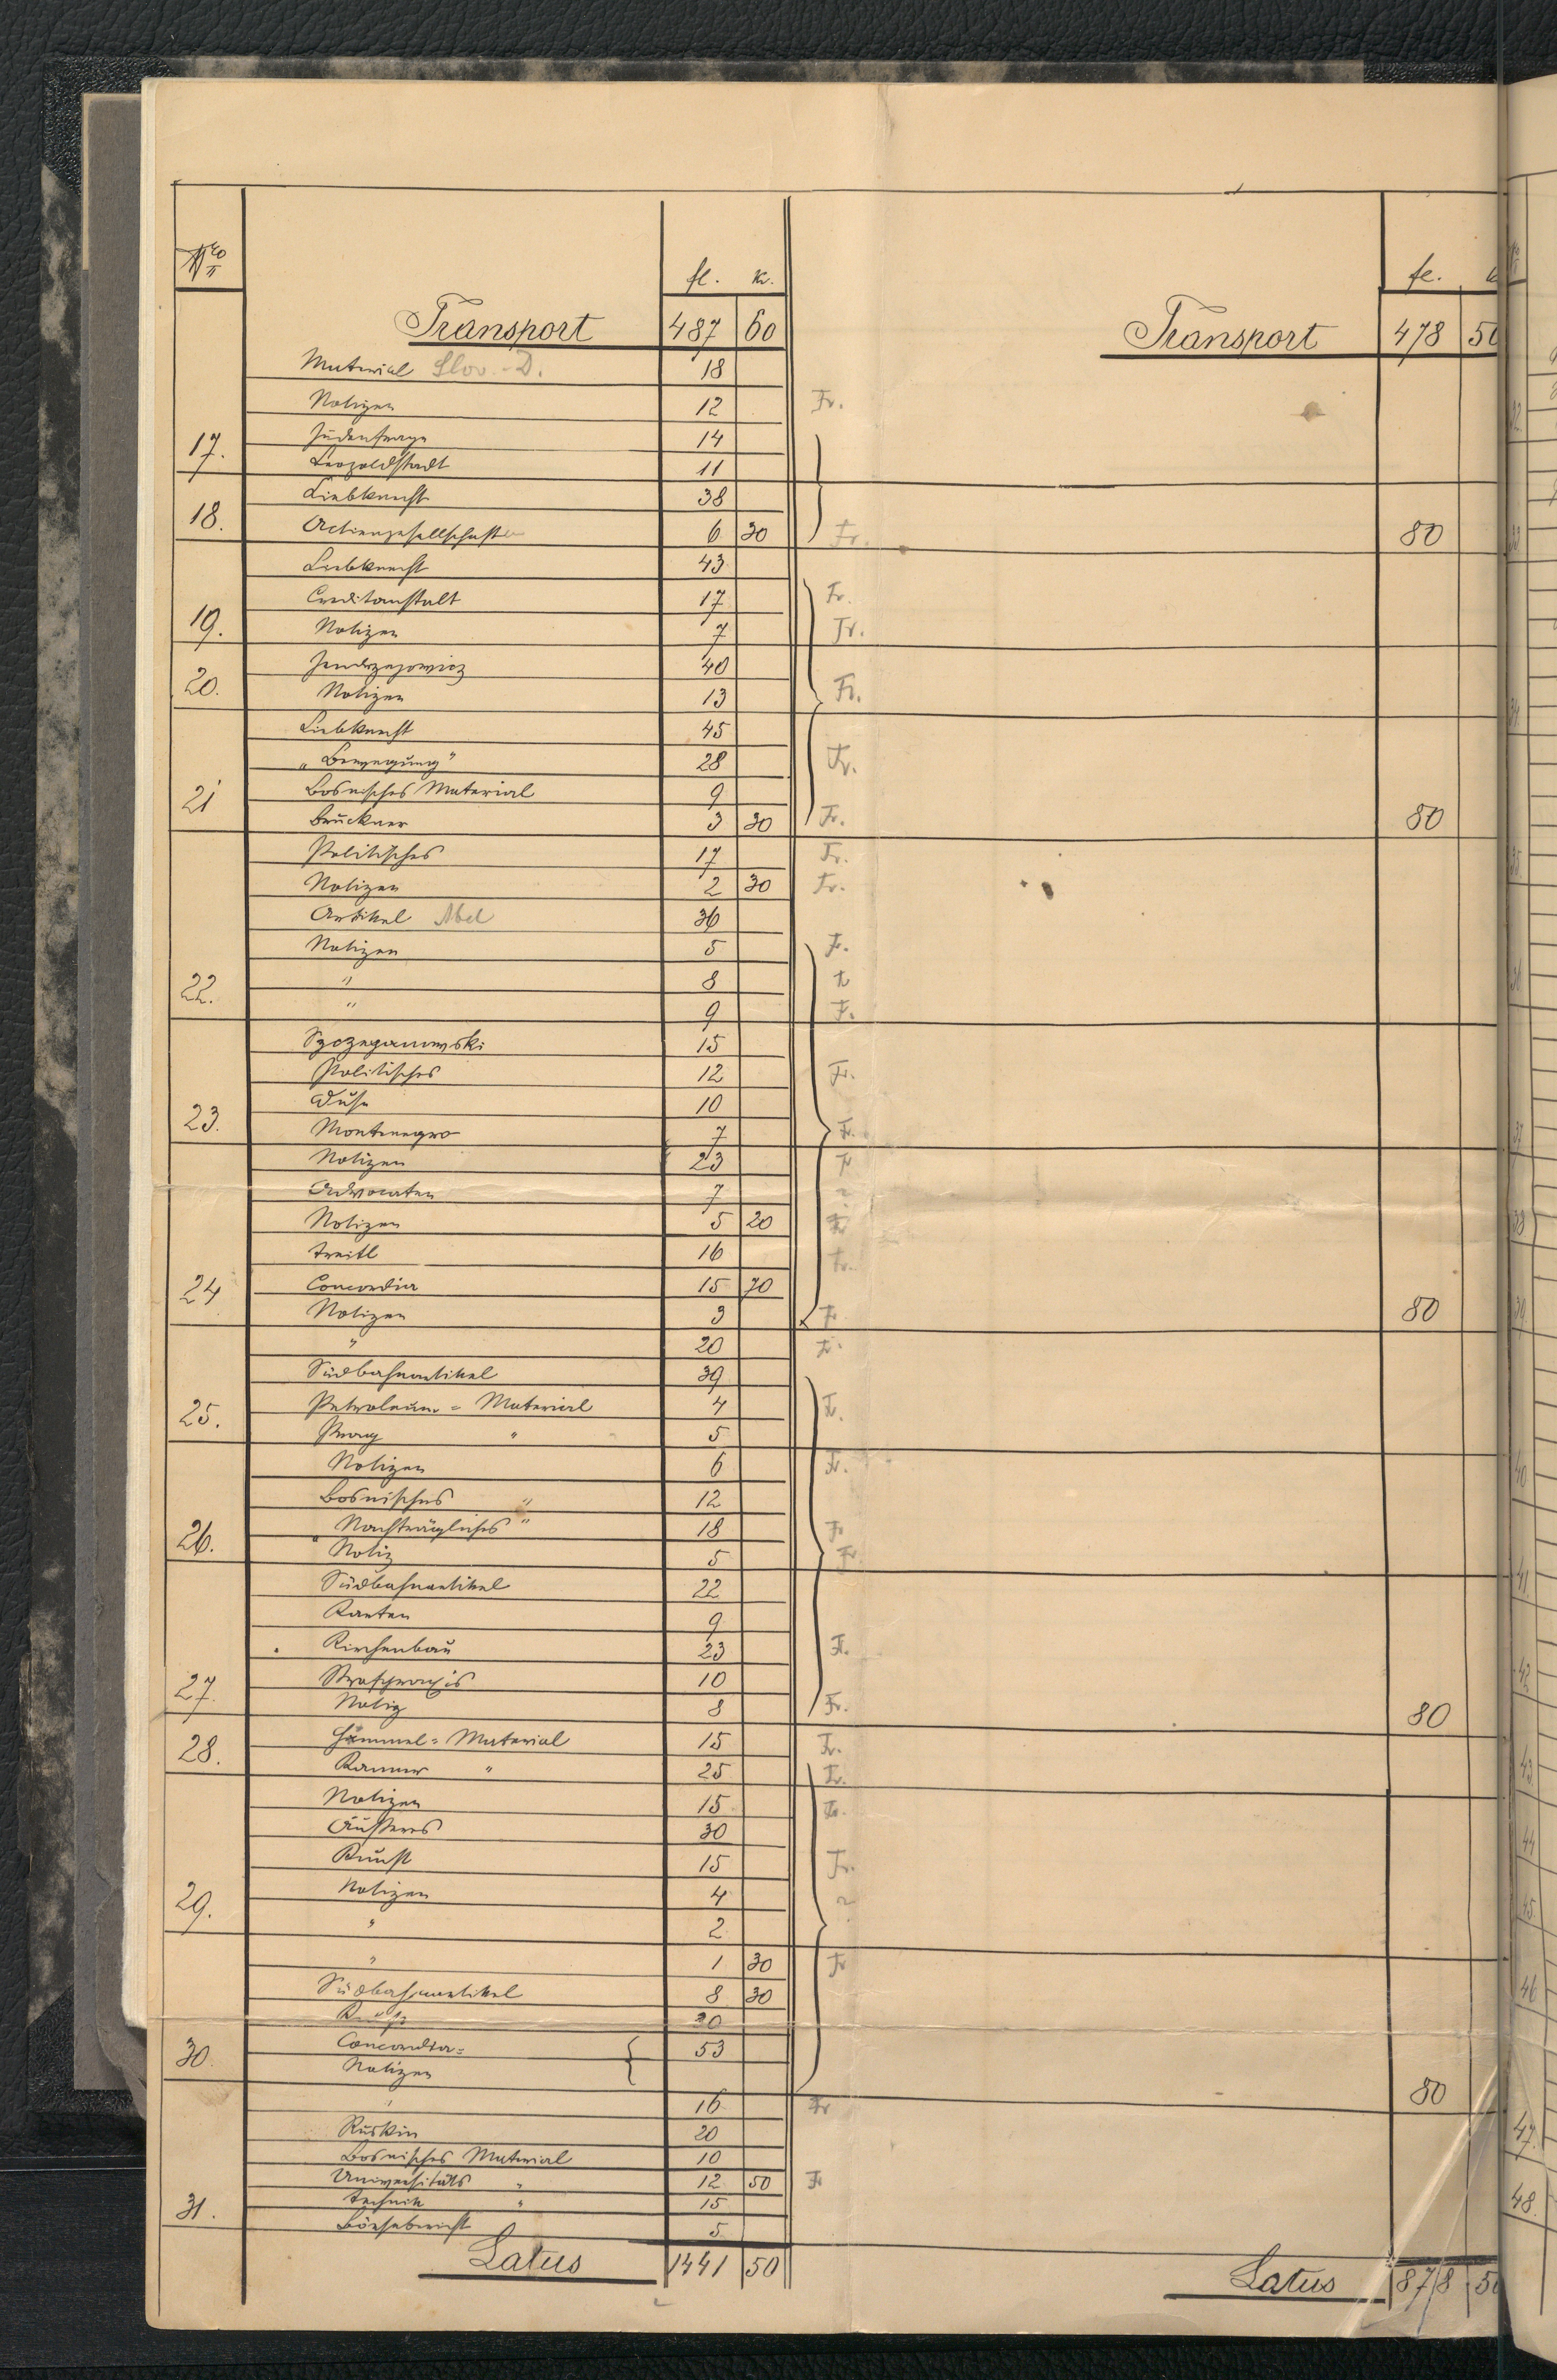 Nro
fl. kr. fl. k
Transport 487 60 Transport 478 50
Material Slov.-D. 18
Notizen 12 Fr.
17. Judenfrage 14
Leopoldstadt 11
Liebknecht 38
18. Actiengesellschaften 6 30 Fr. 80
Liebknecht 43
Creditanstalt 17 Fr.
19. Notizen 7 Fr.
Jendrzejowicz 40
20. Notizen 13 Fr.
Liebknecht 45
„Bewegung" 28 Fr.
21 Bosnisches Material 9
Bruckner 3 30 Fr. 80
Politisches 17 Fr.
Notizen 2 30 Fr.
Artikel Abel 36
Notizen 5 Fr.
22. " 8 Fr
" 9 Fr.
Szczepanowski 15
Politisches 12 Fr.
Duse 10
23. Montenegro 7 Fr.
Notizen 23 Fr
Advocaten 7
Notizen 5 20 Fr
Treitl 16 Fr.
24 Concordia 15 70
Notizen 3 Fr 80
" 20 Fr.
Südbahnartikel 39
25. Petroleum = Material 4 Fr.
Prag " 5
Notizen 6 Fr.
Bosnisches " 12
26. Nachträgliches " 18 Fr
" Notiz 5 Fr
Südbahnartikel 22
Karten 9
Kirchenbau 23 Fr.
27. Strafpraxis 10
Notiz 8 Fr. 80
28. Hammel = Material 15 Fr.
Kammer " 25 Fr.
Notizen 15 Fr.
Äußeres 30
Kunst 15 Fr.
29. Notizen 4
" 2
" 1 30 Fr
Südbahnartikel 8 30
20
30. Concordia= 53
Notizen
" 16 Fr 80
Ruskin 20
Bosnisches Material 10
Universitäts " 12 50 Fr
31. Technik " 15
Börsebericht 5
Latus 1441 50 Latus 878 50